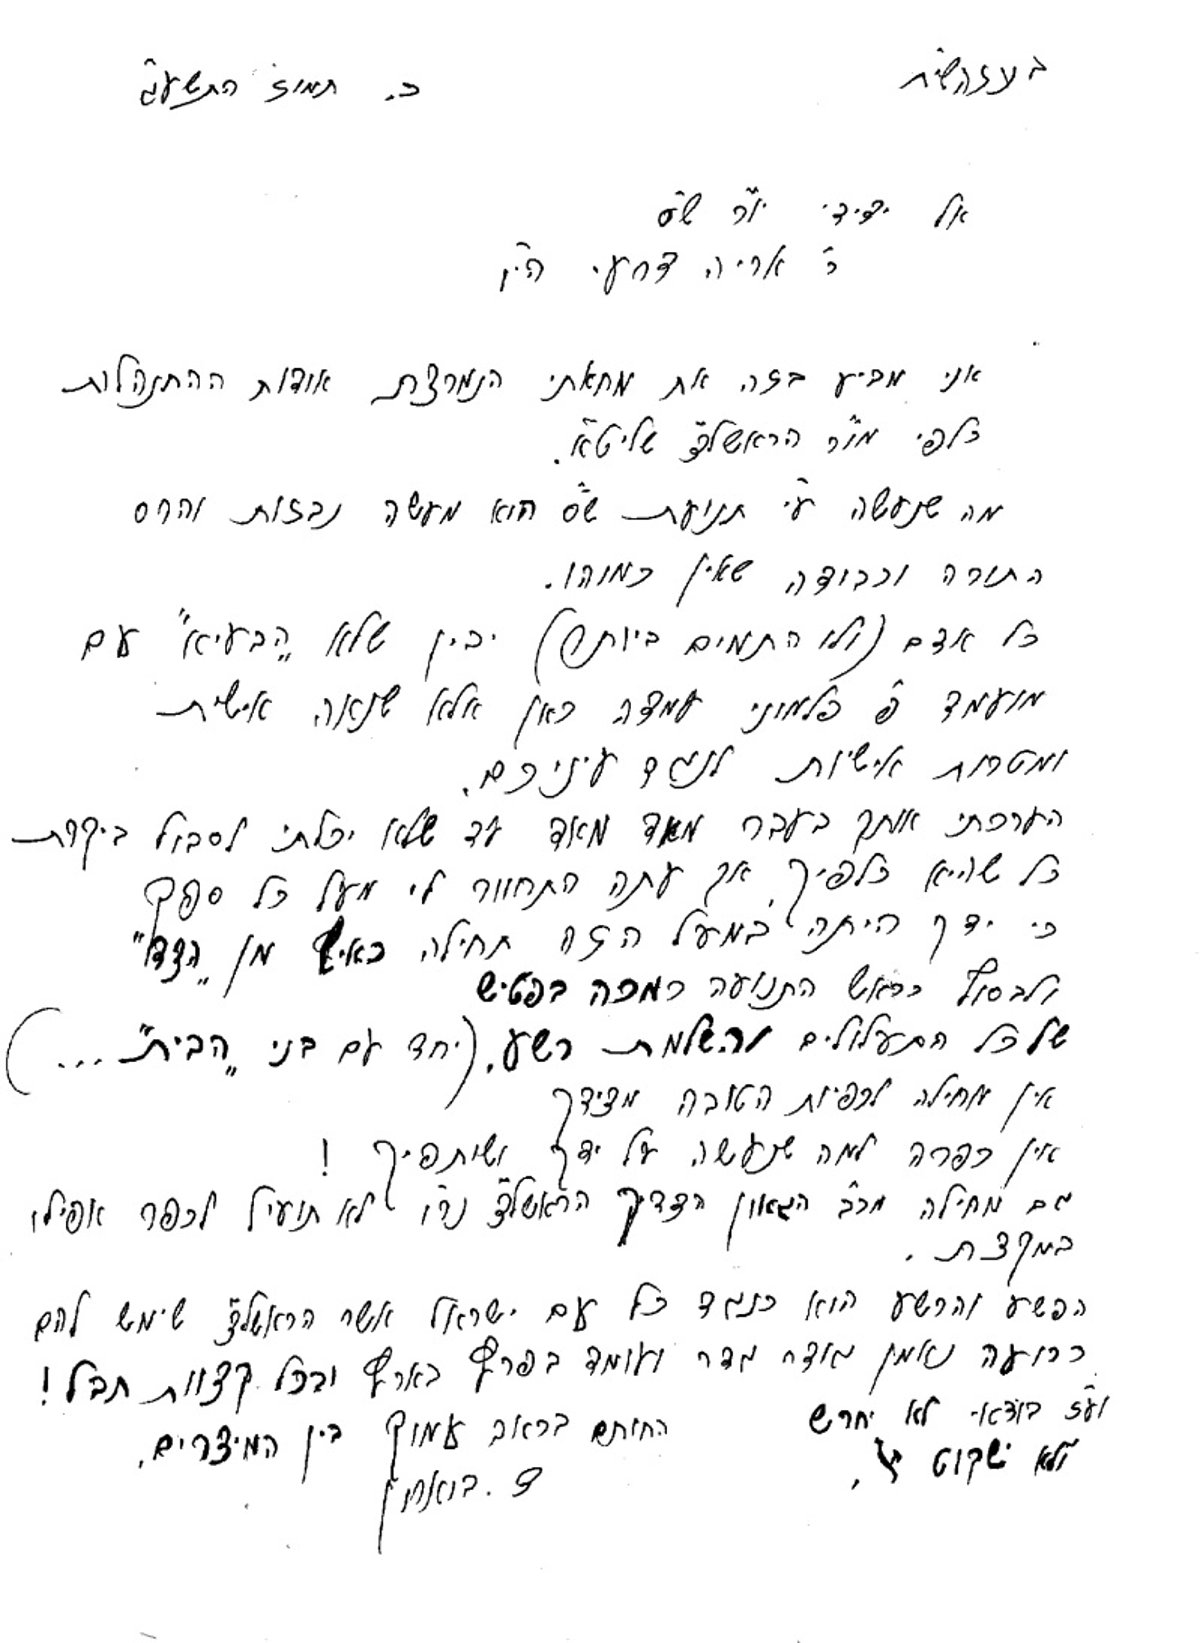 בעזהשי״ת כ. תמוז התשע״ג
אל ידידי יו״ר ש״ס
ר׳ אריה דרעי הי״ו
אני מביע בזה את מחאתי הנמרצת אודות ההתנהלות
כלפי מו״ר הראשל״צ שליט״א.
מה שנעשה ע״י תנועת ש״ס הוא מעשה נבזות והרס
התורה וכבודה שאין כמוהו.
כל אדם (ולו התמים ביותר) יבין שלא "הבעיא" עם
מועמד פ׳ פלמוני עמדה כאן אלא שנאה אישית
ומטרות אישיות לנגד עיניכם.
הערכתי אותך בעבר מאד מאד עד שלא יכלתי לסבול ביקרת
כל שהיא כלפיך, אך עתה התחוור לי מעל כל ספק
כי ידך היתה במעל הזה תחילה כאילו מן "הצד"
ולבסוף בראש התנועה כמכה בפטיש
של כל התעלולים והשלמת רשע. (יחד עם בני "הבית" ...)
אין מחילה לכפיות הטובה מצידך
אין כפרה למה שנעשה על ידך ושותפיך !
גם מחילה מכ״ב הגאון הצדיק הראשל״צ נר״ו לא תועיל לכפר אפילו
במקצת.
הפשע והרשע הוא כנגד כל עם ישראל אשר הראשל״צ שימש להם
כרועה נאמן גודר גדר ועומד בפרץ בארץ ובכל קצוות תבל !
ועז בודאי לא יחרש
ולא ישקוט
החותם בכאב עמוק בין המיצרים.
ד. בוארון